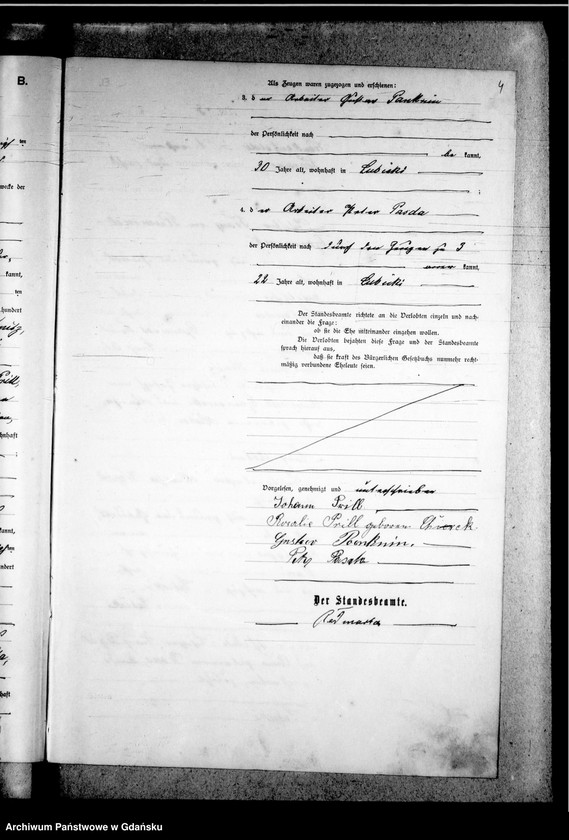 B.
4
Als Zeugen waren zugezogen und erschienen:
3. d er Arbeiter Gustav Panknin
der Persönlichkeit nach
be kannt,
30 Jahre alt, wohnhaft in Lubichi
;
4. d er Arbeiter Peter Pasda
der Persönlichkeit nach durch den Zeugen zu 3
aner kannt,
22 Jahre alt, wohnhaft in Lubichi
Der Standesbeamte richtete an die Verlobten einzeln und nach-
einander die Frage:
ob sie die Ehe miteinander eingehen wollen.
Die Verlobten bejahten diese Frage und der Standesbeamte
sprach hierauf aus,
daß sie kraft des Bürgerlichen Gesetzbuchs nunmehr recht-
mäßig verbundene Eheleute seien.
Vorgelesen, genehmigt und unterschrieben
Johann Prill
Rosalie Prill geboren
Gustav Panknin.
Der Standesbeamte.
Archiwum Państwowe w Gdańsku